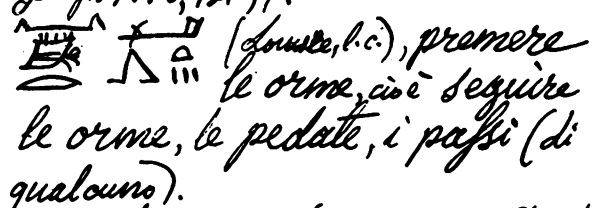 (Louvre, l.c.), premere
le orme, cioè seguire
le orme, le pedate, i passi (di
qualcuno).